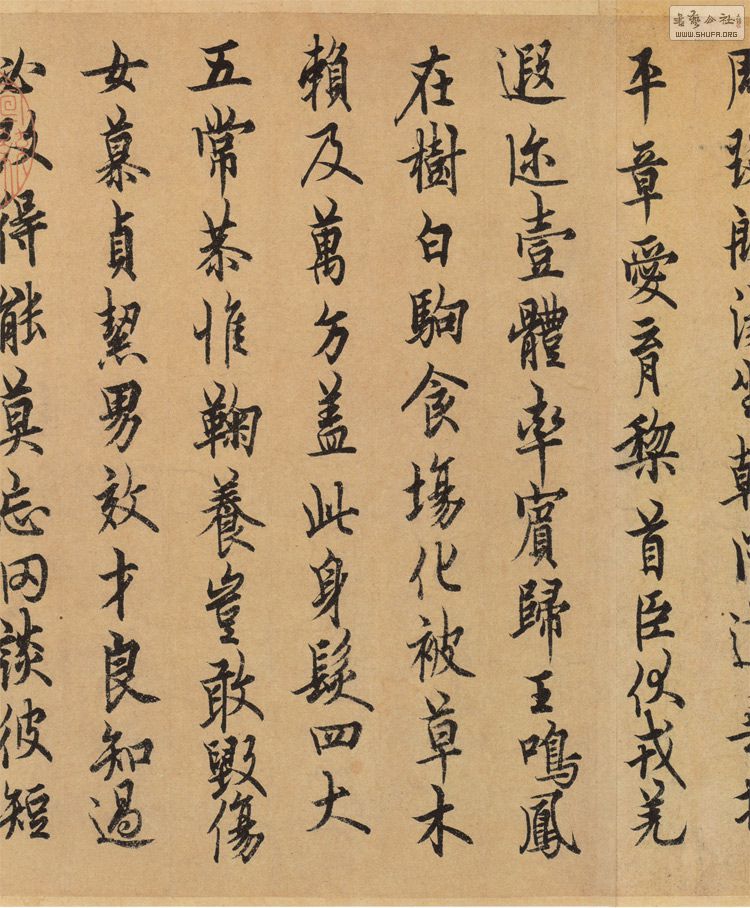 周發殷湯坐朝問道垂拱
平章愛育黎首臣伏戎羌
遐迩壹體率賓歸王鳴鳳
在樹白駒食塲化被草木
賴及萬方蓋此身髮四大
五常恭惟鞠養豈敢毀傷
女慕貞絜男效才良知過
必改得能莫忘罔談彼短
WWW.SHUFA.ORG